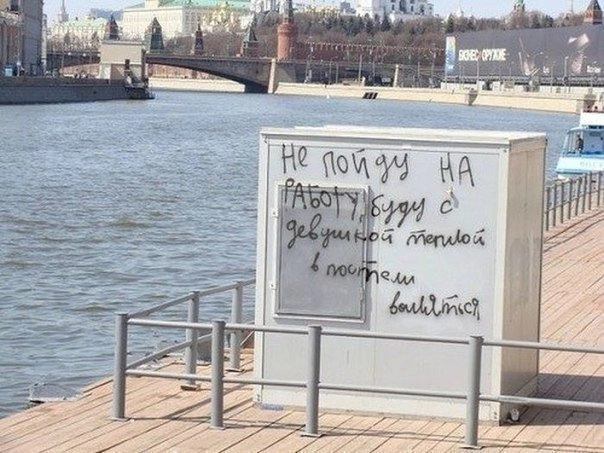 БИЗНЕС ОРУЖИЕ
НЕ ПОЙДУ НА
РАБОТУ, БУДУ С
девушкой теплой
в постели
валяться